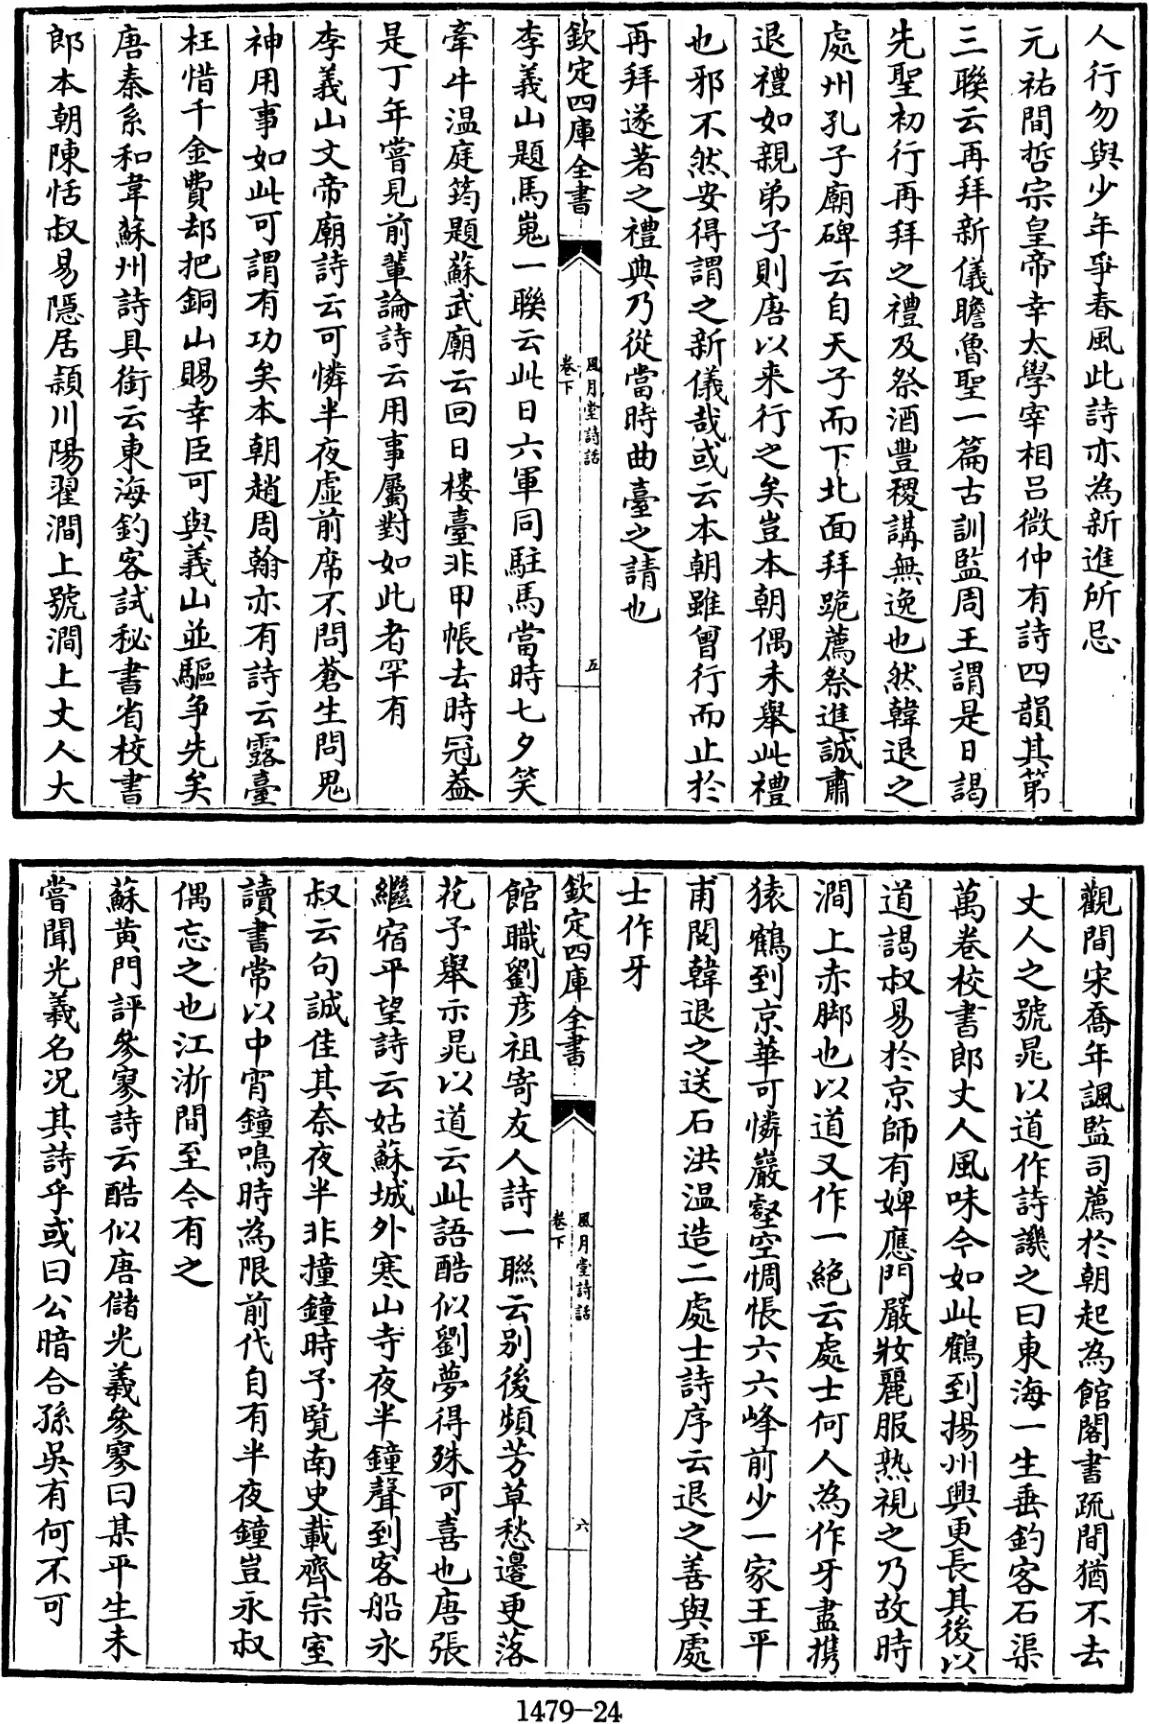 人行勿與少年爭春風此詩亦為新進所忌
元祐間哲宗皇帝幸太學宰相呂微仲有詩四韻其第
三聯云再拜新儀瞻魯聖一篇古訓監周王謂是日謁
先聖初行再拜之禮及祭酒豐稷講無逸也然韓退之
處州孔子廟碑云自天子而下北面拜跪薦祭進誠肅
退禮如親弟子則唐以来行之矣豈本朝偶未舉此禮
也邪不然安得謂之新儀哉或云本朝雖曾行而止於
再拜遂著之禮典乃從當時曲臺之請也
欽定四庫全書
風月堂詩話
卷下
五
李義山題馬嵬一聯云此日六軍同駐馬當時七夕笑
牽牛温庭筠題蘇武廟云回日樓臺非甲帳去時冠葢
是丁年嘗見前輩論詩云用事屬對如此者罕有
李義山文帝廟詩云可憐半夜虛前席不問蒼生問鬼
神用事如此可謂有功矣本朝趙周翰亦有詩云露臺
枉惜千金費却把銅山賜幸臣可與義山並驅争先矣
唐秦系和韋蘇州詩具銜云東海釣客試秘書省校書
郎本朝陳恬叔易隱居潁川陽翟澗上號澗上丈人大
觀間宋喬年諷監司薦於朝起為館閣書疏間猶不去
丈人之號晁以道作詩譏之曰東海一生垂釣客石渠
萬卷校書郎丈人風味今如此鶴到揚州興更長其後以
道謁叔易於京師有婢應門嚴妝麗服熟視之乃故時
澗上赤脚也以道又作一絕云處士何人為作牙盡携
猿鶴到京華可憐巖壑空惆悵六六峰前少一家王平
甫閱韓退之送石洪温造二處士詩序云退之善與處
士作牙
欽定四庫全書
風月堂詩話
卷下
六
館職劉彦祖寄友人詩一聯云别後頻芳草愁邊更落
花予舉示晁以道云此語酷似劉夢得殊可喜也唐張
繼宿平望詩云姑蘇城外寒山寺夜半鐘聲到客船永
叔云句誠佳其奈夜半非撞鐘時予覧南史載齊宗室
讀書常以中宵鐘鳴時為限前代自有半夜鐘豈永叔
偶忘之也江浙間至今有之
蘇黄門評參寥詩云酷似唐儲光義參寥曰某平生未
嘗聞光義名况其詩乎或曰公暗合孫吳有何不可
1479-24